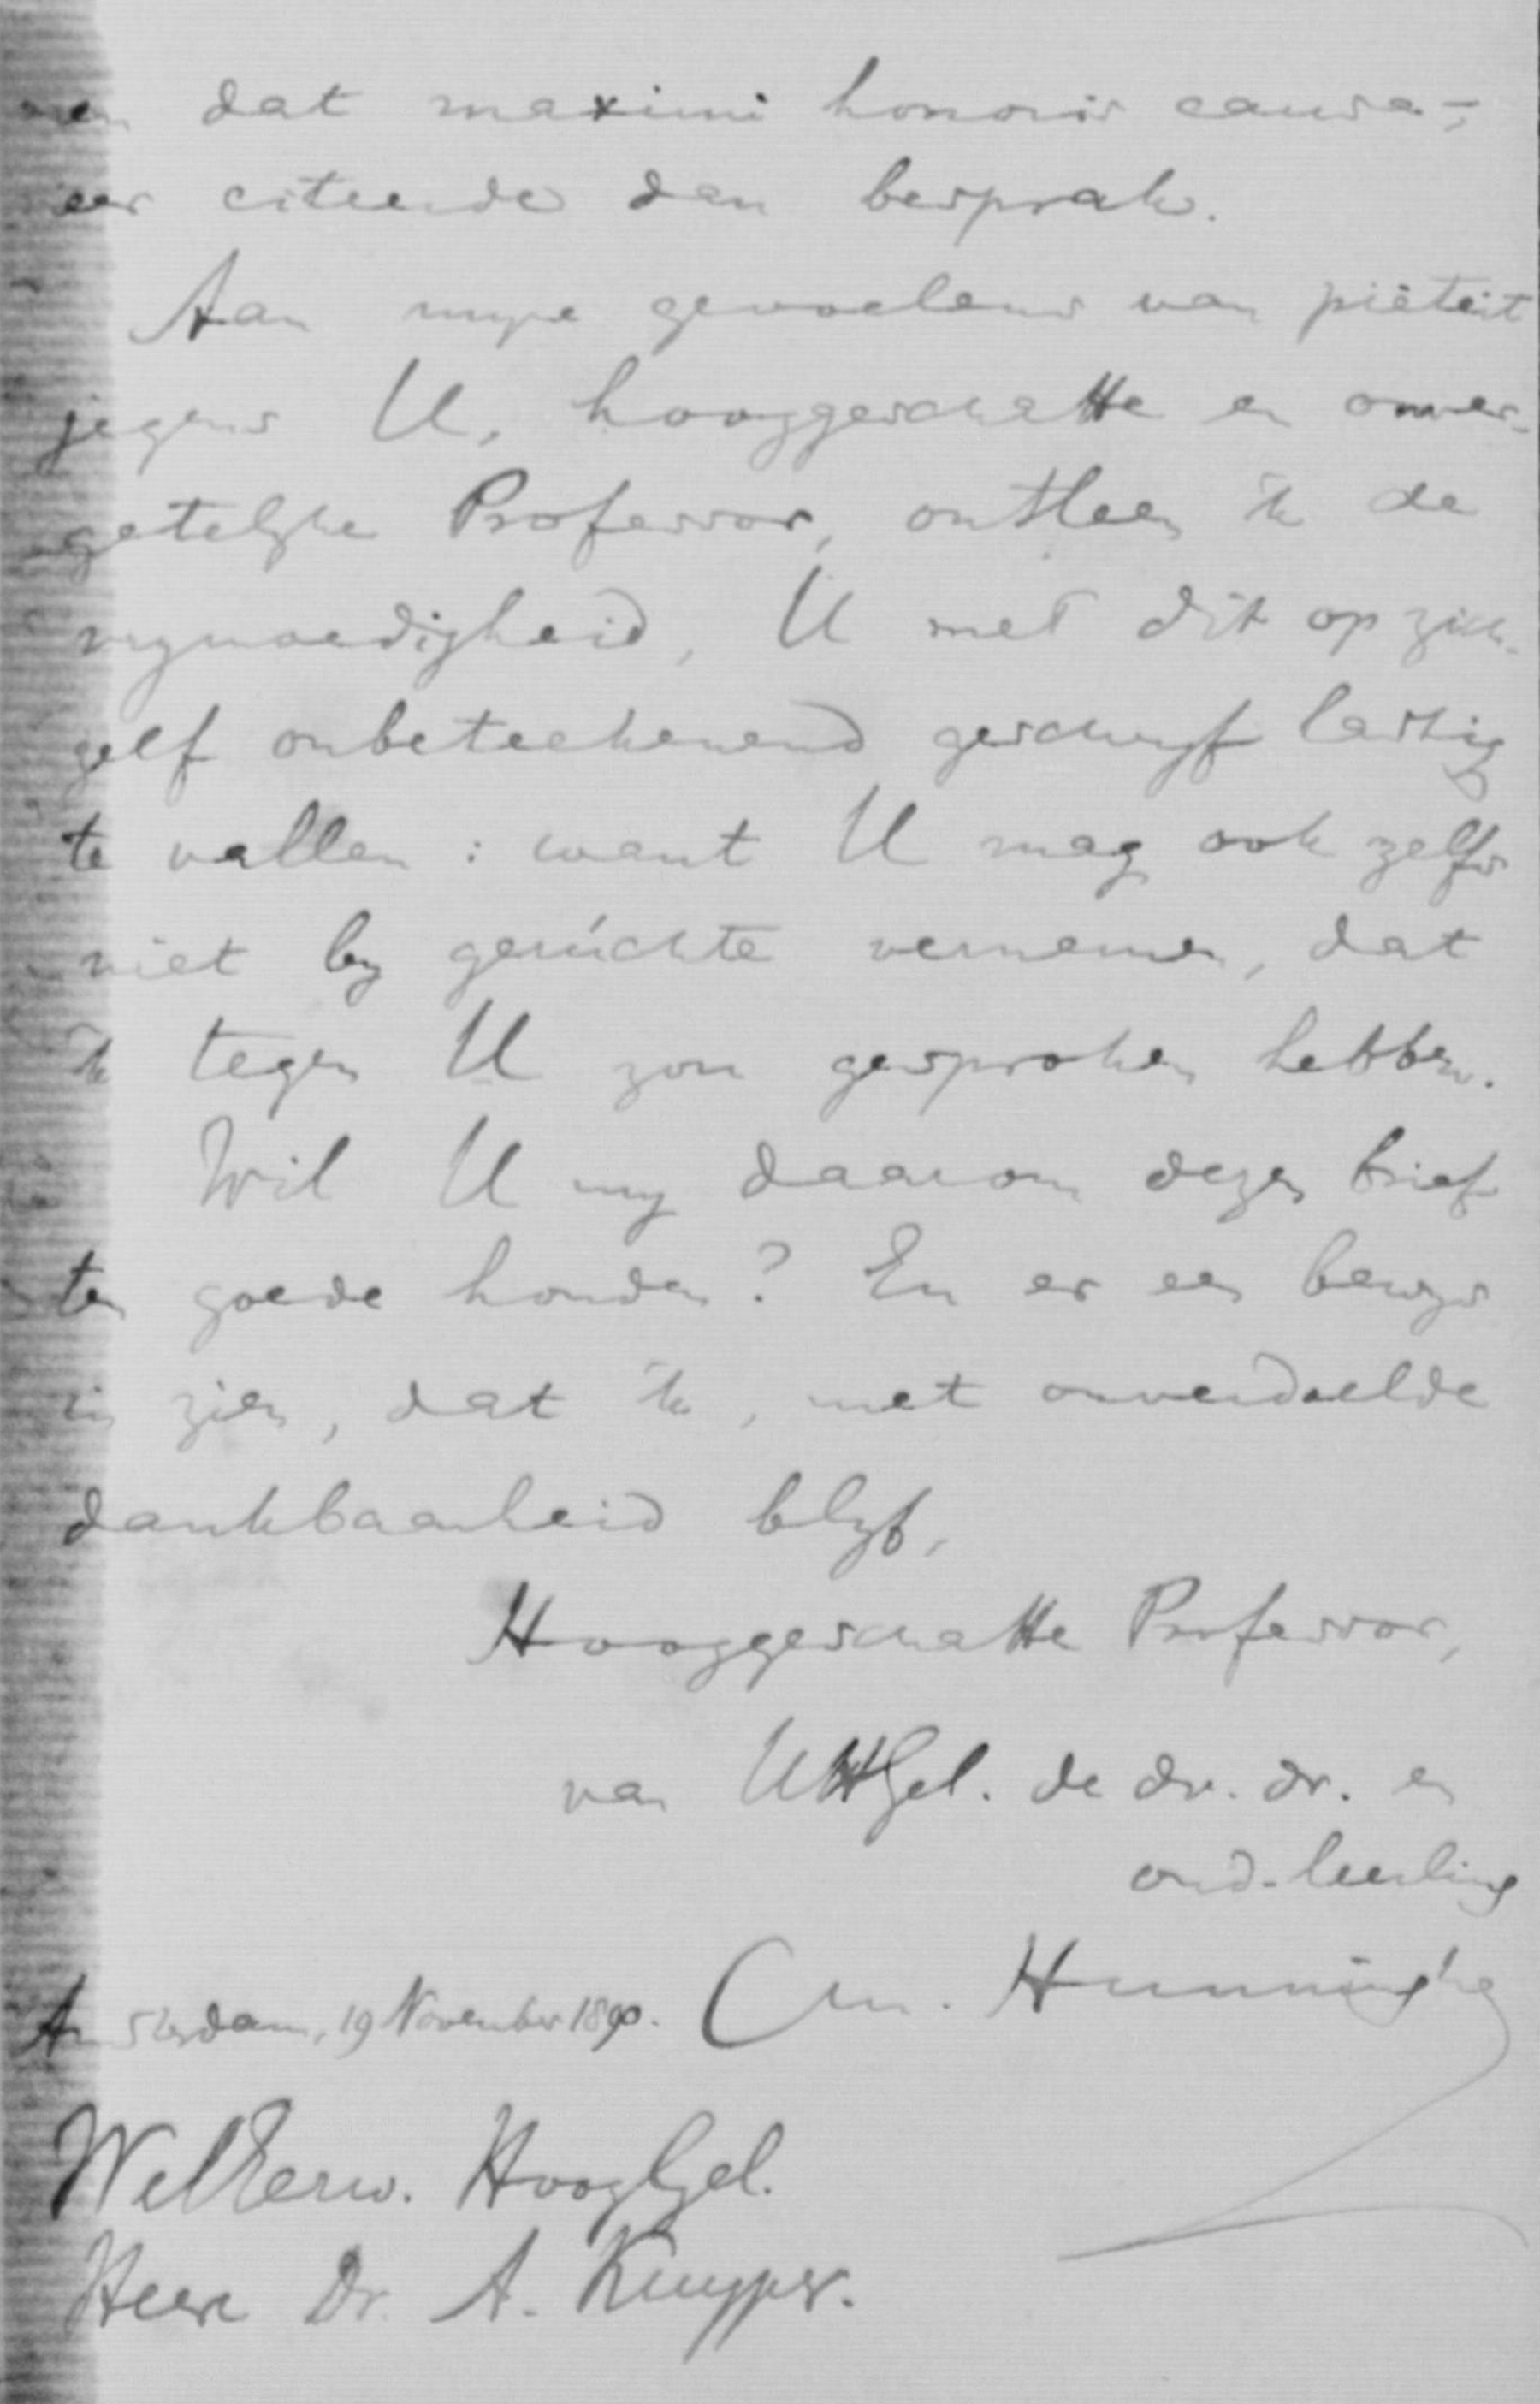 men dat maximi honoris causa,-
eer citeerde dan besprak.
Aan mijne gevoelens van piëteit
jegens U, hooggeschatte en onver-
getelijke Professor, ontleen ik de
vrijmoedigheid, U met dit op zich-
zelf onbeteekenend geschrijf lastig
te vallen: want U mag ook zelfs
niet bij gerúchte vernemen, dat
ik tegen U zou gesproken hebben.
Wil U mij daarom dezen brief
ten goede houden? En er een bewijs
in zien, dat ik, met onverdeelde
dankbaarheid blijf,
Hooggeschatte Professor,
van UHGel. de dv. dr. en
oud-leerling
Amsterdam, 19 November 1890. Chr. Hunningher
WelEerw. HoogGel.
Heere Dr. A. Kuyper.